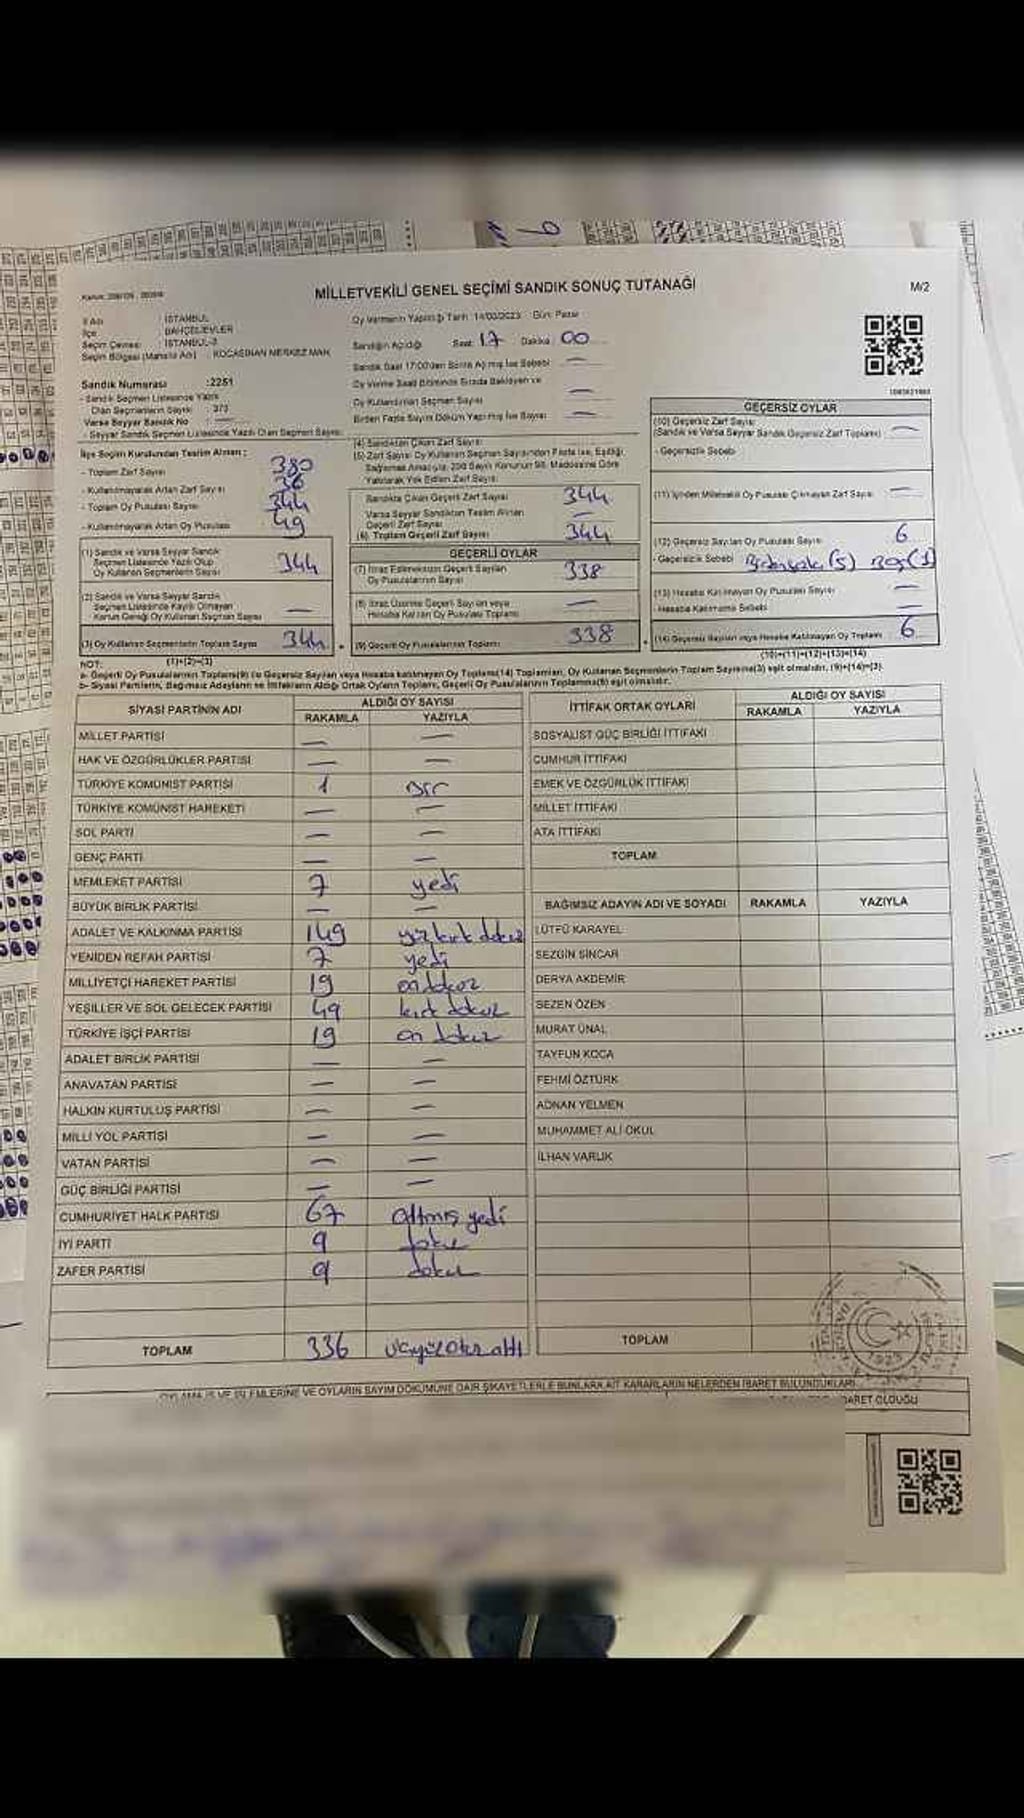 MİLLETVEKİLİ GENEL SEÇİMİ SANDIK SONUÇ TUTANAĞI
M/2
İl Adı : İSTANBUL
İlçe : BAHÇELİEVLER
Seçim Çevresi : İSTANBUL-3
Seçim Bölgesi (Mahalle Adı) : KOCASİNAN MERKEZ MAH.
Sandık Numarası :2251
- Sandık Seçmen Listesinde Yazılı
Olan Seçmenlerin Sayısı : 373
Varsa Seyyar Sandık No
- Seyyar Sandık Seçmen Listesinde Yazılı Olan Seçmen Sayısı:
Oy Vermenin Yapıldığı Tarih: 14/05/2023 Gün: Pazar
Sandığın Açıldığı Saat: 17 Dakika: 00
Sandık Saat 17:00'den Sonra Açılmış İse Sebebi: —
Oy Verme Saati Bitiminde Sırada Bekleyen ve
Oy Kullandırılan Seçmen Sayısı —
Birden Fazla Sayım Döküm Yapılmış İse Sayısı: —
İlçe Seçim Kurulundan Teslim Alınan ;
- Toplam Zarf Sayısı 380
- Kullanılmayarak Artan Zarf Sayısı 36
- Toplam Oy Pusulası Sayısı 344
- Kullanılmayarak Artan Oy Pusulası 49
(1) Sandık ve Varsa Seyyar Sandık
Seçmen Listesinde Yazılı Olup
Oy Kullanan Seçmenlerin Sayısı 344
(2) Sandık ve Varsa Seyyar Sandık
Seçmen Listesinde Kayıtlı Olmayan
Kanun Gereği Oy Kullanan Seçmen Sayısı —
(3) Oy Kullanan Seçmenlerin Toplam Sayısı 344
(1)+(2)=(3)
(4) Sandıktan Çıkan Zarf Sayısı
(5) Zarf Sayısı Oy Kullanan Seçmen Sayısından Fazla İse, Eşitliği
Sağlamak Amacıyla, 298 Sayılı Kanunun 98. Maddesine Göre
Yakılarak Yok Edilen Zarf Sayısı
Sandıkta Çıkan Geçerli Zarf Sayısı 344
Varsa Seyyar Sandıktan Teslim Alınan
Geçerli Zarf Sayısı —
(6) Toplam Geçerli Zarf Sayısı 344
GEÇERLİ OYLAR
(7) İtiraz Edilmeksizin Geçerli Sayılan
Oy Pusulalarının Sayısı 338
(8) İtiraz Üzerine Geçerli Sayılan veya
Hesaba Katılan Oy Pusulası Toplamı —
(9) Geçerli Oy Pusulalarının Toplamı 338
GEÇERSİZ OYLAR
(10) Geçersiz Zarf Sayısı
(Sandık ve Varsa Seyyar Sandık Geçersiz Zarf Toplamı) —
- Geçersizlik Sebebi
(11) İçinden Milletvekili Oy Pusulası Çıkmayan Zarf Sayısı —
(12) Geçersiz Sayılan Oy Pusulası Sayısı 6
- Geçersizlik Sebebi (5) Boş (1)
(13) Hesaba Katılmayan Oy Pusulası Sayısı —
- Hesaba Katılmama Sebebi —
(14) Geçersiz Sayılan veya Hesaba Katılmayan Oy Toplamı 6
(10)+(11)+(12)+(13)=(14)
NOT:
a- Geçerli Oy Pusulalarının Toplamı(9) ile Geçersiz Sayılan veya Hesaba katılmayan Oy Toplamı(14) Toplamları, Oy Kullanan Seçmenlerin Toplam Sayısına(3) eşit olmalıdır. (9)+(14)=(3)
b- Siyasi Partilerin, Bağımsız Adayların ve İttifakların Aldığı Ortak Oyların Toplamı, Geçerli Oy Pusulalarının Toplamına(9) eşit olmalıdır.
SİYASİ PARTİNİN ADI ALDIĞI OY SAYISI
RAKAMLA YAZIYLA
MİLLET PARTİSİ — —
HAK VE ÖZGÜRLÜKLER PARTİSİ — —
TÜRKİYE KOMÜNİST PARTİSİ 1 Bir
TÜRKİYE KOMÜNİST HAREKETİ — —
SOL PARTİ — —
GENÇ PARTİ — —
MEMLEKET PARTİSİ 7 yedi
BÜYÜK BİRLİK PARTİSİ — —
ADALET VE KALKINMA PARTİSİ 149 yüz kırk dokuz
YENİDEN REFAH PARTİSİ 7 yedi
MİLLİYETÇİ HAREKET PARTİSİ 19 on dokuz
YEŞİLLER VE SOL GELECEK PARTİSİ 49 kırk dokuz
TÜRKİYE İŞÇİ PARTİSİ 19 on dokuz
ADALET BİRLİK PARTİSİ — —
ANAVATAN PARTİSİ — —
HALKIN KURTULUŞ PARTİSİ — —
MİLLİ YOL PARTİSİ — —
VATAN PARTİSİ — —
GÜÇ BİRLİĞİ PARTİSİ — —
CUMHURİYET HALK PARTİSİ 67 altmış yedi
İYİ PARTİ 9 dokuz
ZAFER PARTİSİ 9 dokuz
TOPLAM 336 üçyüz otuz altı
İTTİFAK ORTAK OYLARI ALDIĞI OY SAYISI
RAKAMLA YAZIYLA
SOSYALİST GÜÇ BİRLİĞİ İTTİFAKI
CUMHUR İTTİFAKI
EMEK VE ÖZGÜRLÜK İTTİFAKI
MİLLET İTTİFAKI
ATA İTTİFAKI
TOPLAM
BAĞIMSIZ ADAYIN ADI VE SOYADI RAKAMLA YAZIYLA
LÜTFÜ KARAYEL
SEZGİN SİNCAR
DERYA AKDEMİR
SEZEN ÖZEN
MURAT ÜNAL
TAYFUN KOCA
FEHMİ ÖZTÜRK
ADNAN YELMEN
MUHAMMET ALİ OKUL
İLHAN VARLIK
TOPLAM
OYLAMA İŞ VE İŞLEMLERİNE VE OYLARIN SAYIM DÖKÜMÜNE DAİR ŞİKAYETLERLE BUNLARA AİT KARARLARIN NELERDEN İBARET BULUNDUKLARI
BARET OLDUĞU